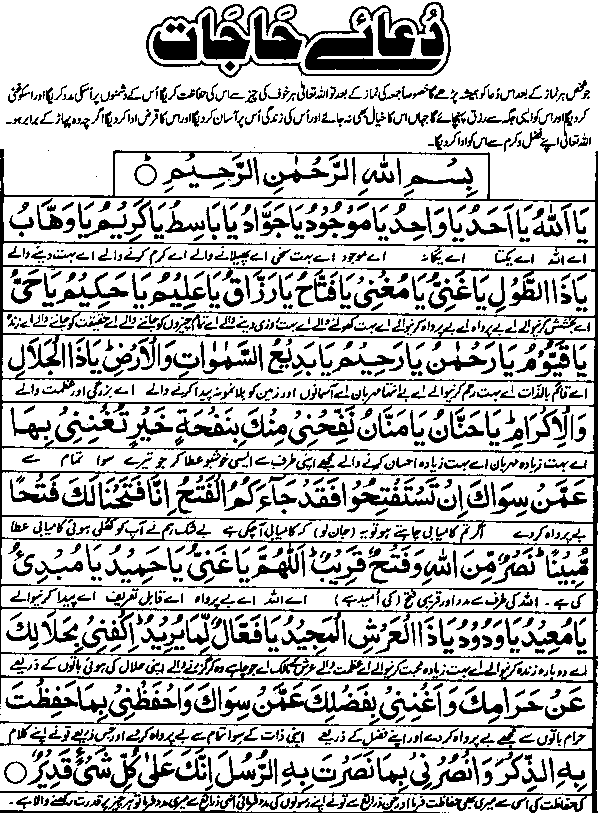 دُعائے حَاجَات
جو شخص ہر نماز کے بعد اس دُعا کو ہمیشہ پڑھے گا خصوصاً جمعہ کی نماز کے بعد تو اللہ تعالیٰ ہر خوف کی چیز سے اس کی حفاظت کریگا اُس کے دشمنوں پر اُسکی مدد کریگا اور اسکو غنی
کر دیگا اور اس کو ایسی جگہ سے رزق پہنچائے گا جہاں اس کا خیال بھی نہ جائے اور اُس کی زندگی اُس پر آسان کر دیگا اور اس کا قرض ادا کر دیگا اگرچہ وہ پہاڑ کے برابر ہو۔
اللہ تعالیٰ اپنے فضل و کرم سے اس کو ادا کر دیگا۔
بِسْمِ اللهِ الرَّحْمٰنِ الرَّحِيْمِ
يَا اَللهُ يَا اَحَدُ يَا وَاحِدُ يَا مَوْجُوْدُ يَا جَوَّادُ يَا بَاسِطُ يَا كَرِيْمُ يَا وَهَّابُ
اے اللہ اے یکتا اے یگانہ اے موجود اے بہت سخی اے پھیلانے والے اے کرم کرنے والے اے بہت دینے والے
يَا ذَا الطَّوْلِ يَا غَنِيُّ يَا مُغْنِيُ يَا فَتَّاحُ يَا رَزَّاقُ يَا عَلِيْمُ يَا حَكِيْمُ يَا حَيُّ
اے بخشش کرنیوالے اے بے پرواہ اے بے پرواہ کرنیوالے اے بہت کھولنے والے اے بہت روزی دینے والے اے تمام چیزوں کو جاننے والے اے حقیقت کو جاننے والے اے زندہ
يَا قَيُّوْمُ يَا رَحْمٰنُ يَا رَحِيْمُ يَا بَدِيْعَ السَّمٰوَاتِ وَالْاَرْضِ يَا ذَا الْجَلَالِ
اے قائم بالذات اے بہت رحم کرنیوالے اے بے انتہا مہربان اے آسمانوں اور زمین کو بلا نمونہ پیدا کرنے والے اے بزرگی اور عظمت والے
وَالْاِكْرَامِ يَا حَنَّانُ يَا مَنَّانُ نَفِّحْنِيْ مِنْكَ بِنَفْحَةٍ خَيْرٍ تُغْنِنِيْ بِهَا
اے بہت زیادہ مہربان اے بہت زیادہ احسان کرنے والے مجھے اپنی طرف سے ایسی خوشبو عطا کر جو تیرے سوا تمام سے
عَمَّنْ سِوَاكَ اِنْ تَسْتَفْتِحُوْا فَقَدْ جَاءَكُمُ الْفَتْحُ اِنَّا فَتَحْنَا لَكَ فَتْحًا
بے پرواہ کردے اگر تم کامیابی چاہتے ہو تو یہ (جان لو) کہ کامیابی آ چکی ہے بے شک ہم نے آپ کو کھلی ہوئی کامیابی عطا
مُّبِيْنًا نَصْرٌ مِّنَ اللهِ وَفَتْحٌ قَرِيْبٌ اَللّٰهُمَّ يَا غَنِيُّ يَا حَمِيْدُ يَا مُبْدِئُ
کی ہے۔ اللہ کی طرف سے مدد اور قریبی فتح (کی اُمید ہے) اے اللہ اے بے پرواہ اے قابل تعریف اے پیدا کرنیوالے
يَا مُعِيْدُ يَا وَدُوْدُ يَا ذَا الْعَرْشِ الْمَجِيْدُ يَا فَعَّالُ لِّمَا يُرِيْدُ اِكْفِنِيْ بِحَلَالِكَ
اے دوبارہ زندہ کرنیوالے اے بہت زیادہ محبت کرنیوالے اے عظمت والے عرش کے مالک اے جو چاہے وہ کر گزرنے والے اپنی حلال کی ہوئی باتوں کے ذریعے
عَنْ حَرَامِكَ وَاَغْنِنِيْ بِفَضْلِكَ عَمَّنْ سِوَاكَ وَاحْفَظْنِيْ بِمَا حَفِظْتَ
حرام باتوں سے مجھے بے پرواہ کردے اور اپنے فضل کے ذریعے اپنی ذات کے سوا تمام سے بے پرواہ کردے اور جس ذریعے تو نے اپنے کلام
بِهِ الذِّكْرَ وَانْصُرْنِيْ بِمَا نَصَرْتَ بِهِ الرُّسُلَ اِنَّكَ عَلٰى كُلِّ شَيْءٍ قَدِيْرٌ
کی حفاظت کی اسی سے میری بھی حفاظت فرما اور جن ذرائع سے تو نے اپنے رسولوں کی مدد فرمائی انہی ذرائع سے میری مدد فرما تو ہر چیز پر قدرت رکھنے والا ہے۔